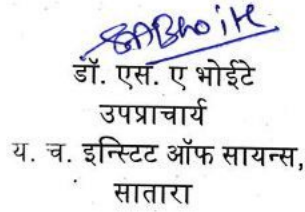 SABhoite
डॉ. एस. ए भोईटे
उपप्राचार्य
य. च. इन्स्टिट ऑफ सायन्स,
सातारा